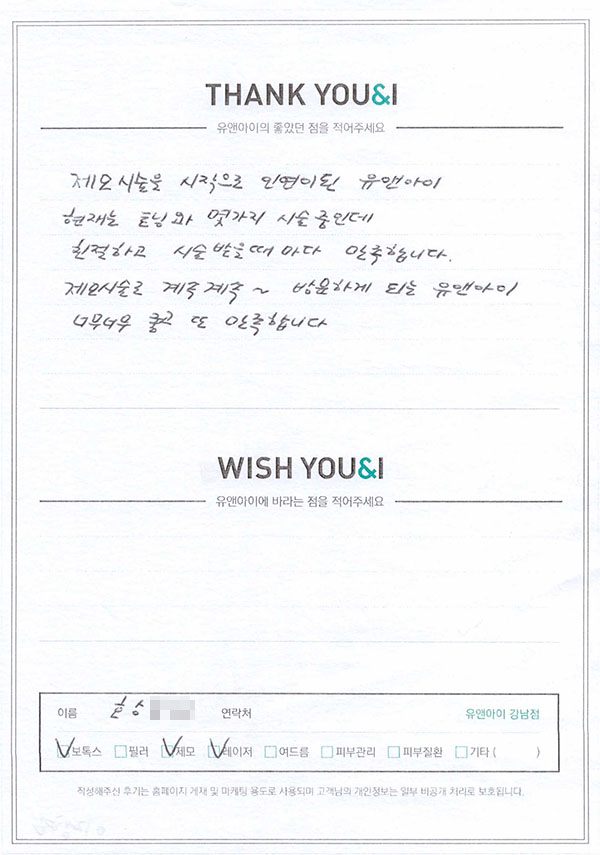 THANK YOU&I
유앤아이의 좋았던 점을 적어주세요
제모시술을 시작으로 인연이된 유앤아이
현재는 토닝과 몇가지 시술중인데
친절하고 시술 받을때 마다 만족합니다.
제모시술로 계족계족 ~ 방문하게 되는 유앤아이
너무너무 좋고 또 만족합니다
WISH YOU&I
유앤아이에 바라는 점을 적어주세요
이름 홍상 연락처 유앤아이 강남점
보톡스 필러 제모 레이저 여드름 피부관리 피부질환 기타 ( )
작성해주신 후기는 홈페이지 게재 및 마케팅 용도로 사용되며 고객님의 개인정보는 일부 비공개 처리로 보호됩니다.